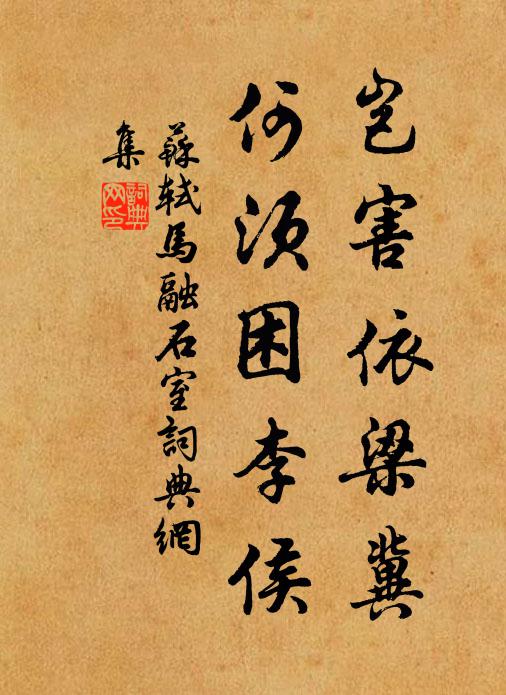 岂害依梁冀
何须困李侯
蘇軾馬融石室詞典網
集
詞典網印